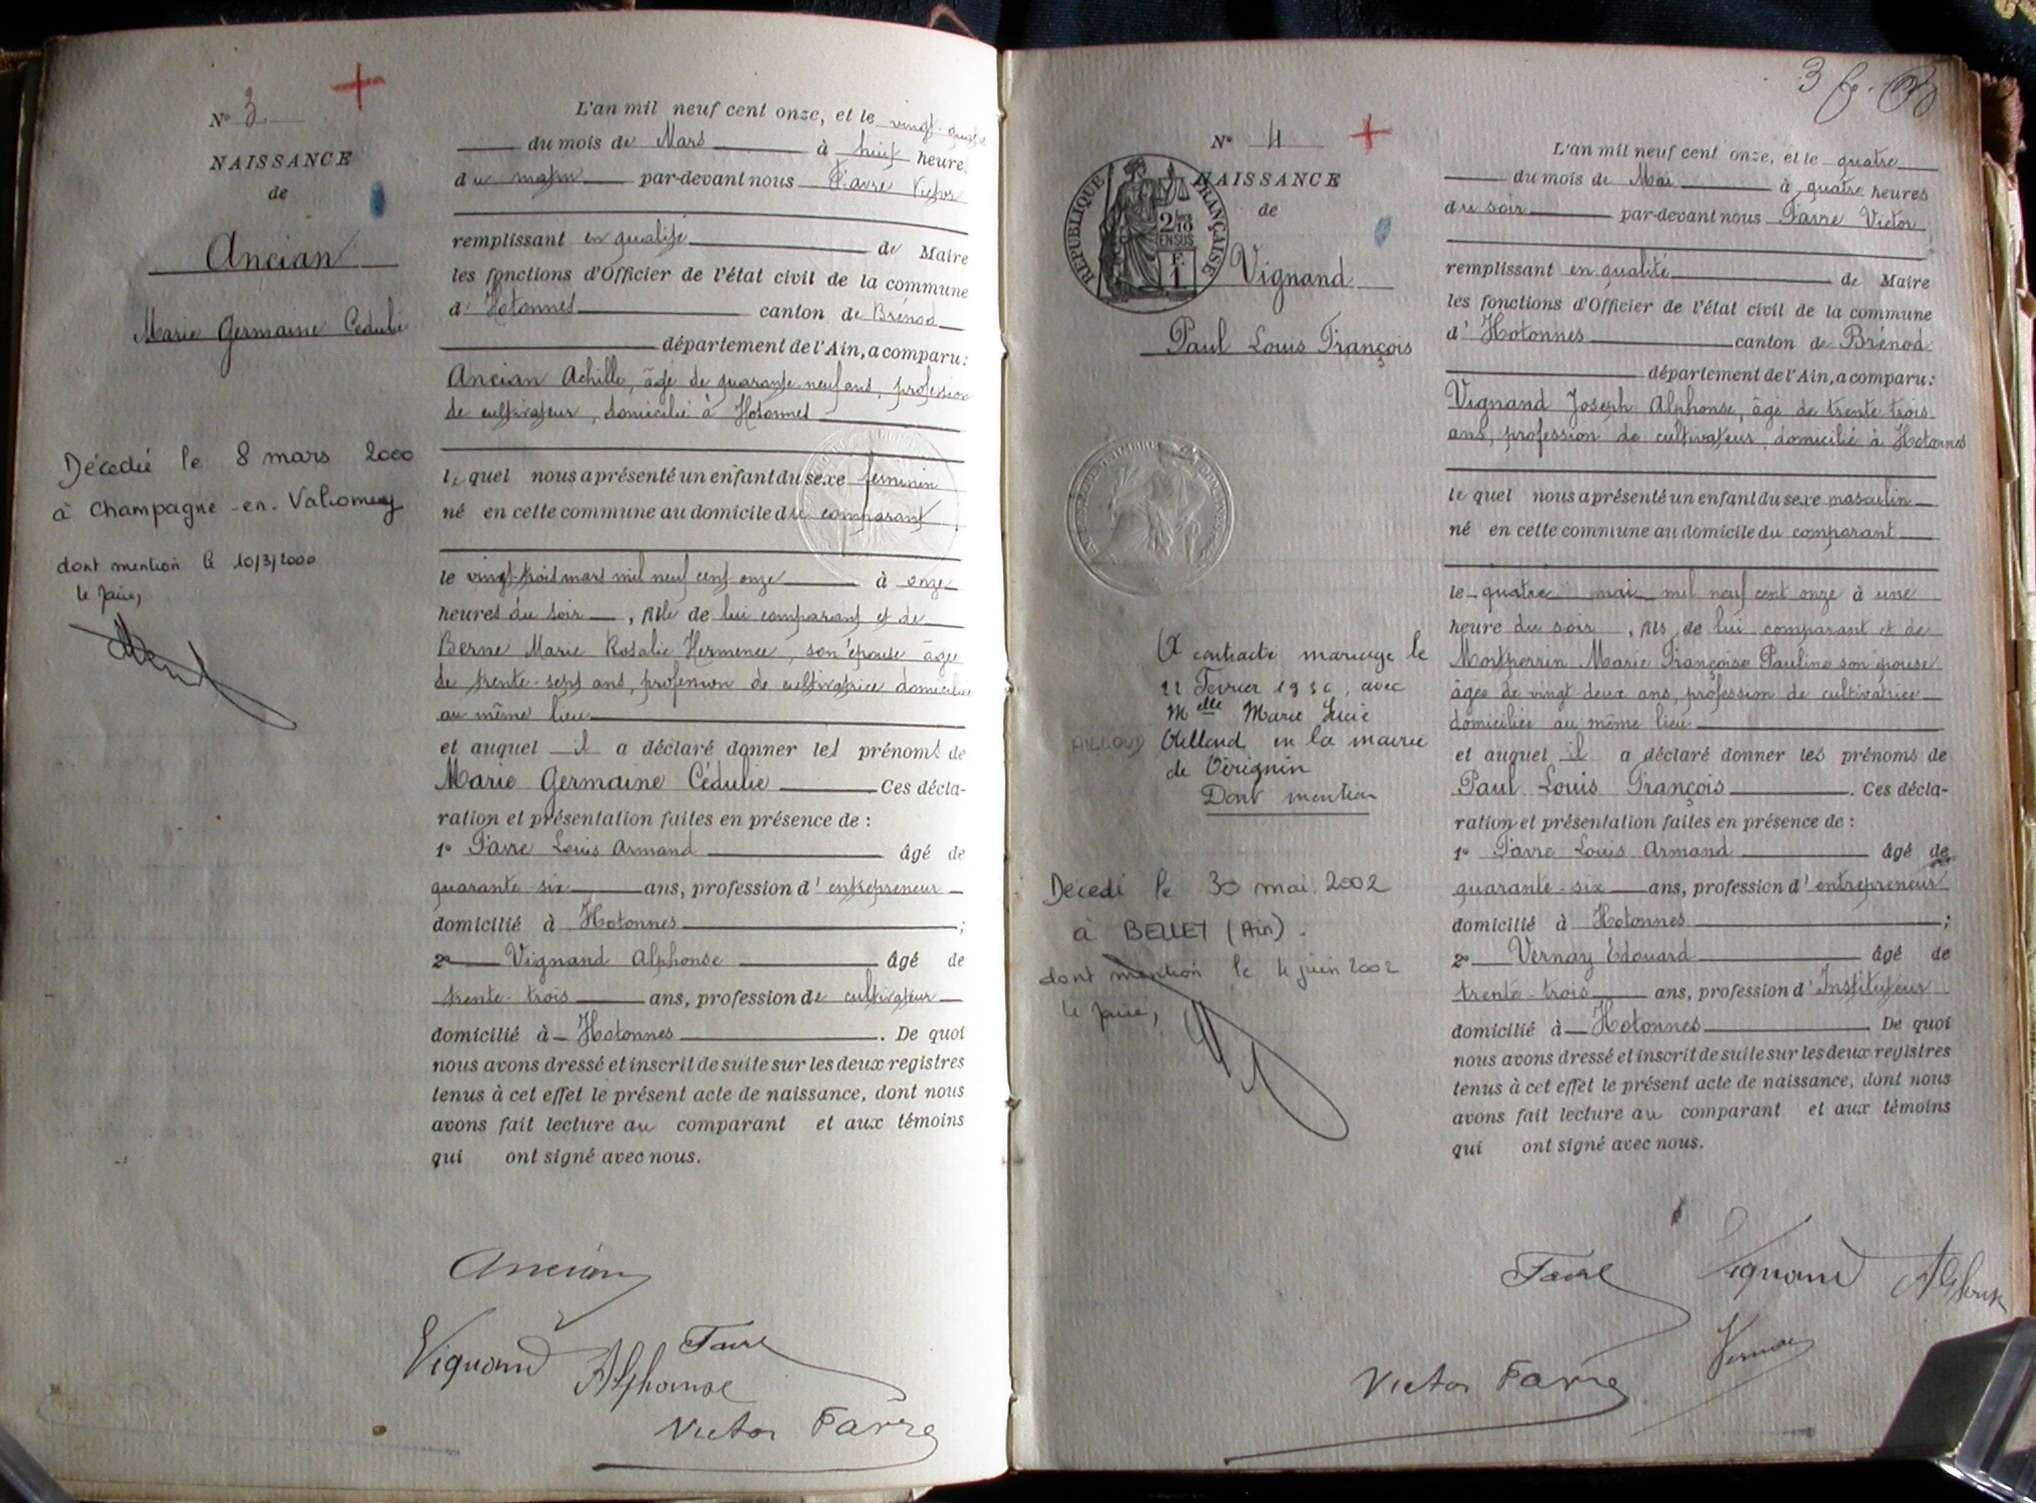 N° 3
NAISSANCE
de
Ancian
Marie Germaine Cédulie
Décédée le 8 mars 2000
à Champagne-en-Valromey
dont mention le 10/3/2000
le Maire,
L'an mil neuf cent onze, et le vingt-quatre
du mois de Mars à huit heures
du matin par-devant nous Favre Victor
remplissant en qualité de Maire
les fonctions d'Officier de l'état civil de la commune
d'Hotonnes canton de Brénod
département de l'Ain, a comparu:
Ancian Achille, âgé de quarante-neuf ans, profession
de cultivateur, domicilié à Hotonnes
lequel nous a présenté un enfant du sexe féminin
né en cette commune au domicile du comparant
le vingt-trois mars mil neuf cent onze à onze
heures du soir, fille de lui comparant et de
Berne Marie Rosalie Hermence, son épouse âgée
de trente-sept ans, profession de cultivatrice domiciliée
au même lieu
et auquel il a déclaré donner les prénoms de
Marie Germaine Cédulie Ces décla-
ration et présentation faites en présence de :
1° Favre Louis Armand âgé de
quarante-six ans, profession d'entrepreneur
domicilié à Hotonnes ;
2° Vignand Alphonse âgé de
trente-trois ans, profession de cultivateur
domicilié à Hotonnes. De quoi
nous avons dressé et inscrit de suite sur les deux registres
tenus à cet effet le présent acte de naissance, dont nous
avons fait lecture au comparant et aux témoins
qui ont signé avec nous.
Ancian
Vignand Alphonse Favre
Victor Favre
3 f.
N° 4
NAISSANCE
de
RÉPUBLIQUE FRANÇAISE
2/10 EN SUS
F. 1
Vignand
Paul Louis François
A contracté mariage le
Février 1936, avec
Melle Marie Lucie
AILLOUD Ailloud en la mairie
de Virignin
Dont mention
Décédé le 30 mai 2002
à BELLEY (Ain).
dont mention le 4 juin 2002
le Maire,
L'an mil neuf cent onze, et le quatre
du mois de Mai à quatre heures
du soir par-devant nous Favre Victor
remplissant en qualité de Maire
les fonctions d'Officier de l'état civil de la commune
d'Hotonnes canton de Brénod
département de l'Ain, a comparu:
Vignand Joseph Alphonse, âgé de trente trois
ans, profession de cultivateur domicilié à Hotonnes
lequel nous a présenté un enfant du sexe masculin
né en cette commune au domicile du comparant
le quatre mai mil neuf cent onze à une
heure du soir, fils de lui comparant et de
Montperrin Marie Françoise Pauline son épouse
âgée de vingt-deux ans, profession de cultivatrice
domiciliée au même lieu
et auquel il a déclaré donner les prénoms de
Paul Louis François. Ces décla-
ration et présentation faites en présence de :
1° Favre Louis Armand âgé de
quarante-six ans, profession d'entrepreneur
domicilié à Hotonnes ;
2° Vernay Édouard âgé de
trente-trois ans, profession d'Instituteur
domicilié à Hotonnes De quoi
nous avons dressé et inscrit de suite sur les deux registres
tenus à cet effet le présent acte de naissance, dont nous
avons fait lecture au comparant et aux témoins
qui ont signé avec nous.
Favre Vignand Alphonse
Vernay
Victor Favre